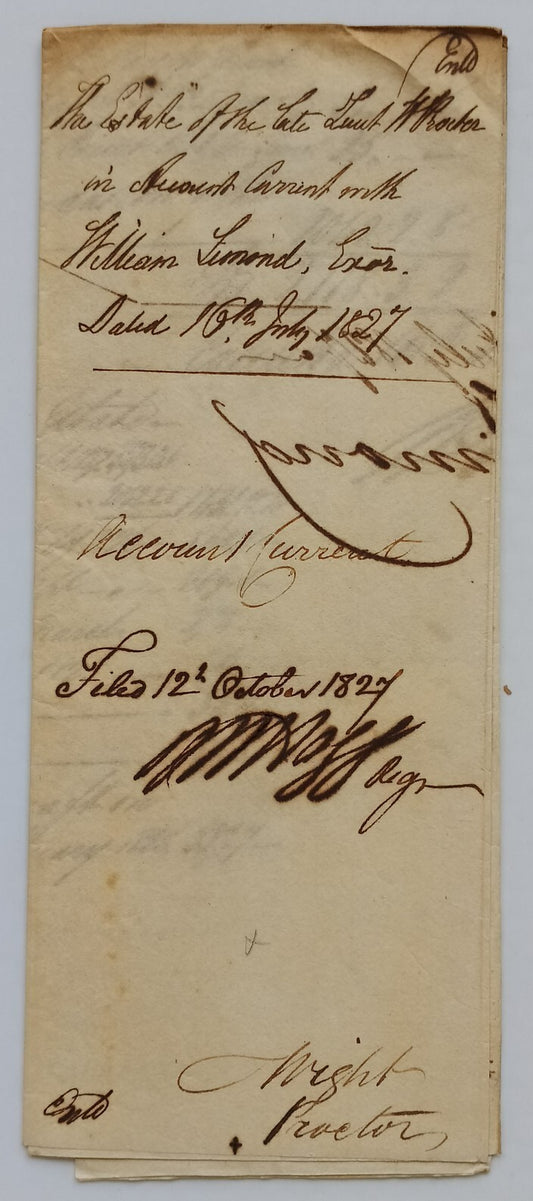 Entd
The Estate of the late Lieut W Procter
in Account Current with
William Limond, Exor.
Dated 16th July 1827
Account Current
Filed 12th October 1827
Regr
Wight
Proctor
Entd